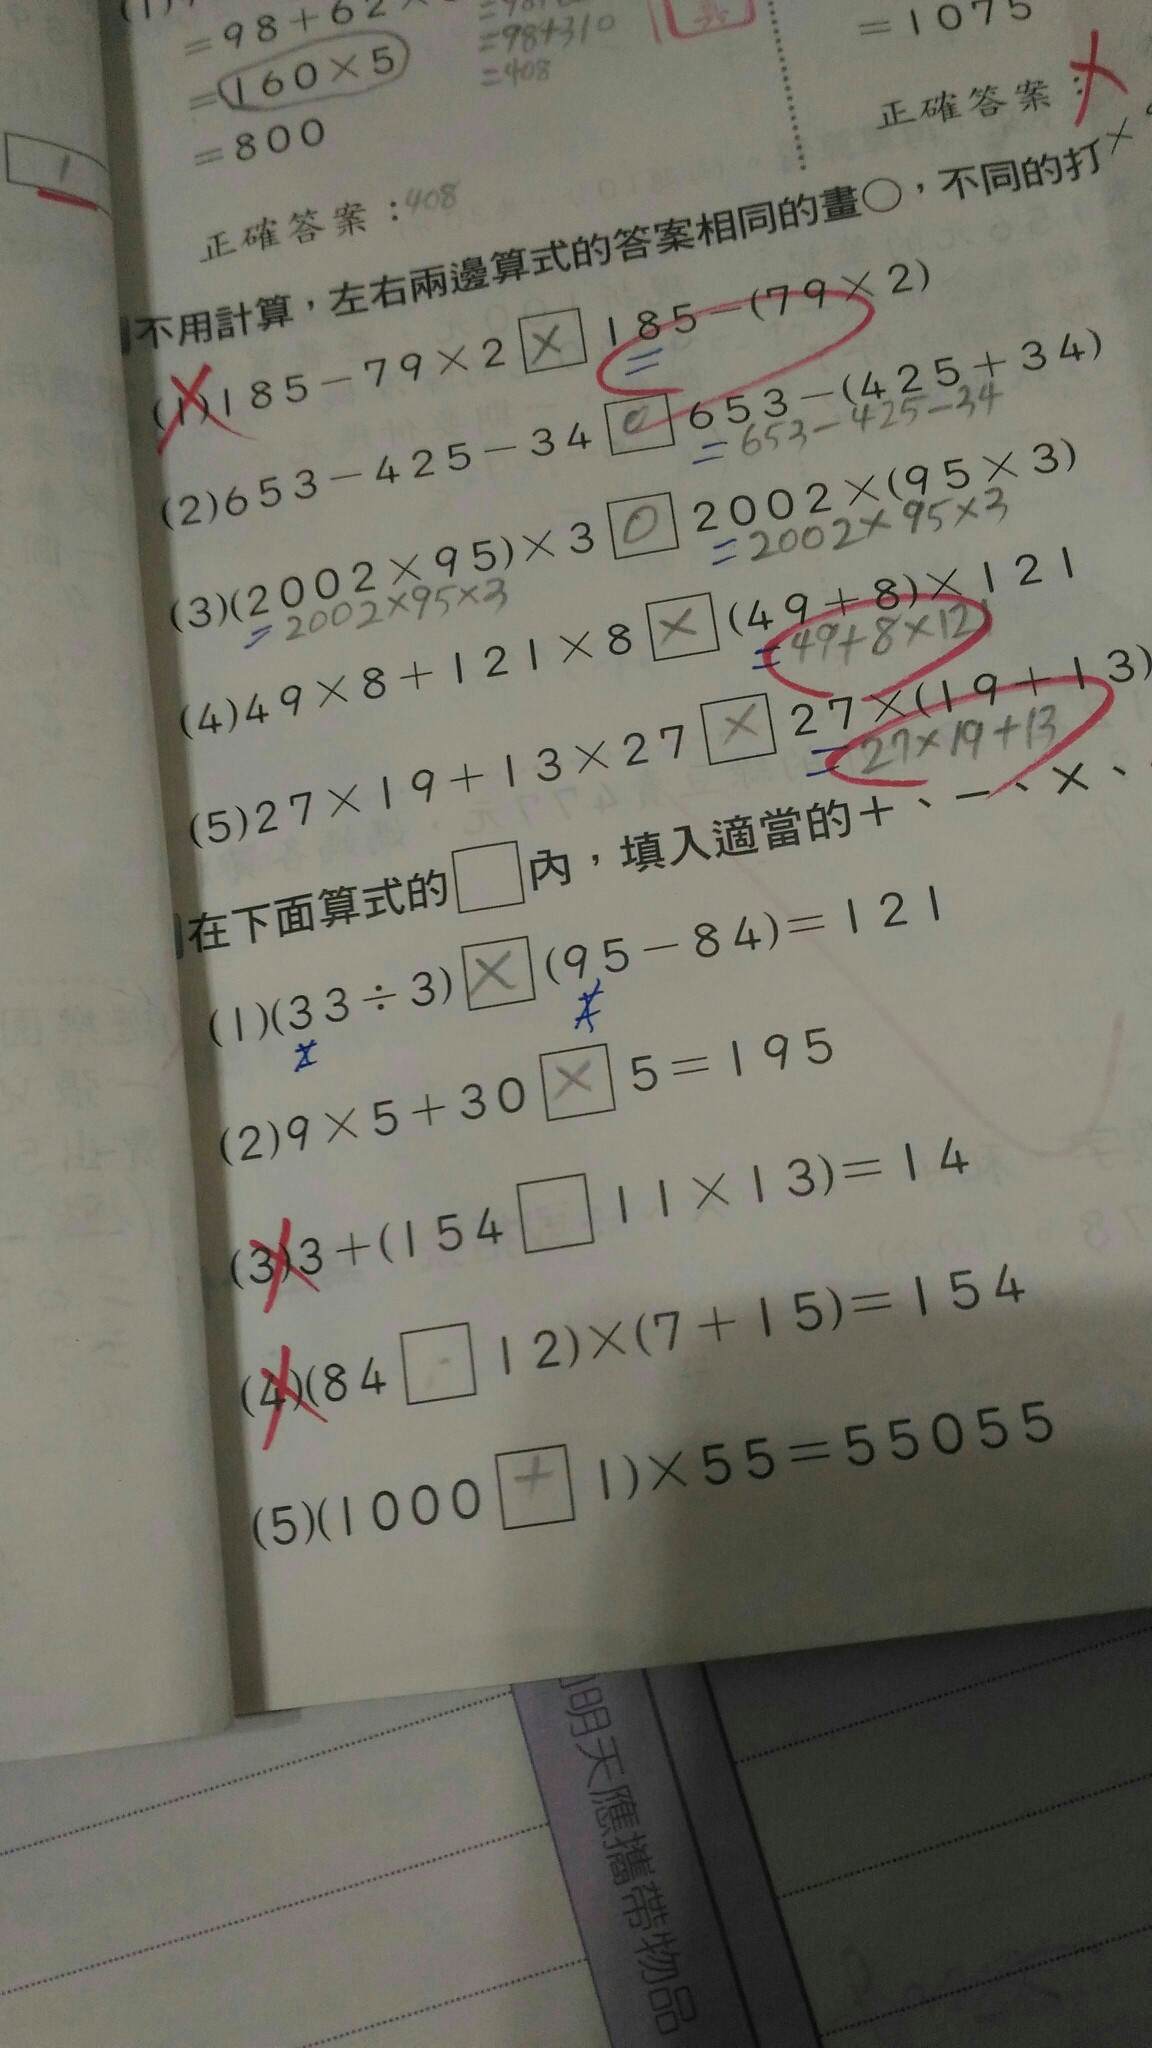 =98+62×
=98+310
=160×5
=408
=800
=1075
正確答案：408
正確答案：
不用計算，左右兩邊算式的答案相同的畫○，不同的打×
(1)185-79×2 × 185-(79×2)
=
(2)653-425-34 0 653-(425+34)
=653-425-34
(3)(2002×95)×3 0 2002×(95×3)
=2002×95×3 =2002×95×3
(4)49×8+121×8 × (49+8)×121
=49+8×12
(5)27×19+13×27 × 27×(19+13)
=27×19+13
在下面算式的□內，填入適當的＋、－、×、
(1)(33÷3) × (95-84)=121
(2)9×5+30 × 5=195
(3)3+(154 □ 11×13)=14
(4)(84 □ 12)×(7+15)=154
(5)(1000 + 1)×55=55055
1
明天應攜帶物品